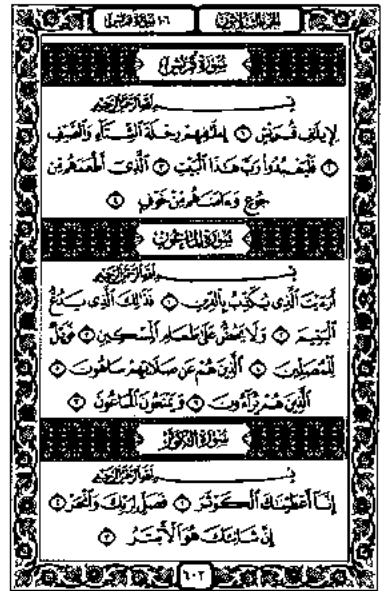 الجزء الثلاثون
١٠٦ سورة قريش
سورة قريش
بسم الله الرحمن الرحيم
لإيلف قريش ١ إۦلفهم رحلة الشتاء والصيف
٢ فليعبدوا رب هذا البيت ٣ الذى أطعمهم من
جوع وءامنهم من خوف ٤
سورة الماعون
بسم الله الرحمن الرحيم
أرءيت الذى يكذب بالدين ١ فذلك الذى يدع
اليتيم ٢ ولا يحض على طعام المسكين ٣ فويل
للمصلين ٤ الذين هم عن صلاتهم ساهون ٥
الذين هم يراءون ٦ ويمنعون الماعون ٧
سورة الكوثر
بسم الله الرحمن الرحيم
إنا أعطينك الكوثر ١ فصل لربك وانحر ٢
إن شانئك هو الأبتر ٣
٦٠٢